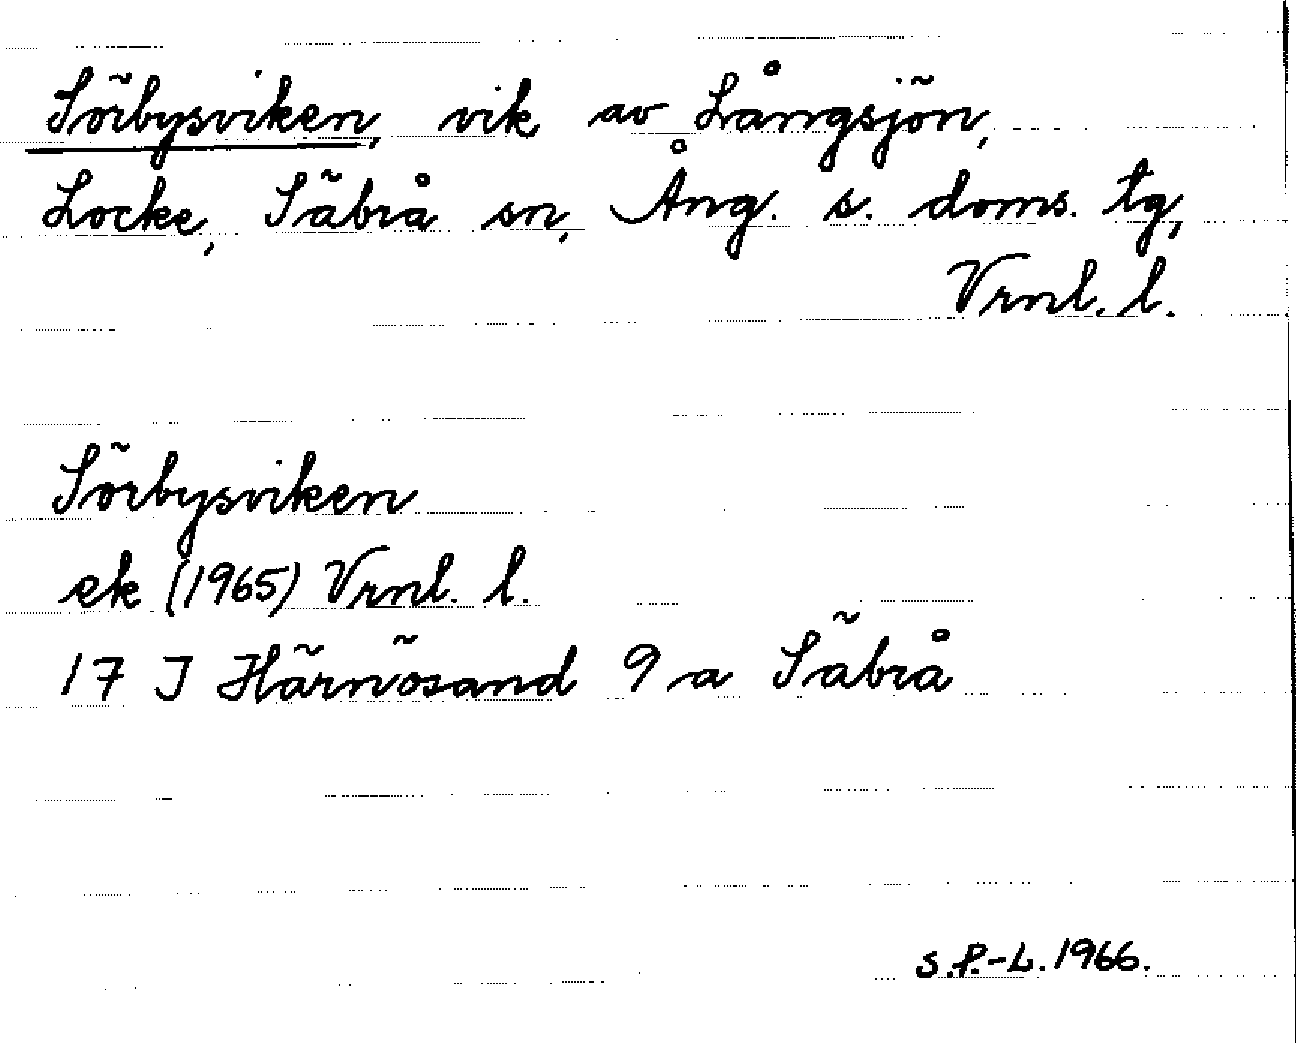 Sörbysviken, vik av Långsjön,
Locke, Säbrå sn, Ång. s. doms. tg,
Vrnl. l.
Sörbysviken
ek (1965) Vrnl. l.
17 J Härnösand 9 a Säbrå
S.P.-L. 1966.